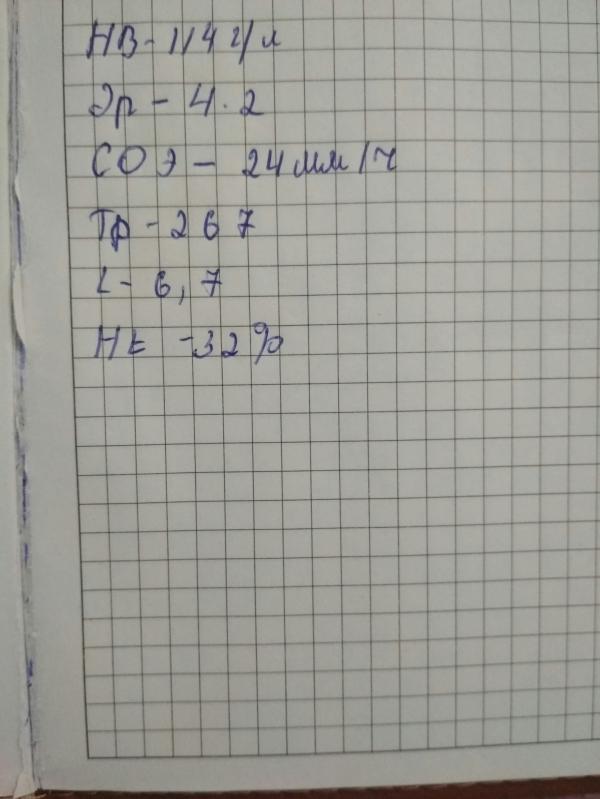 НВ - 114 г/л
Эр - 4.2
СОЭ - 24 мм/ч
Тр - 267
L - 6,7
Ht - 32%